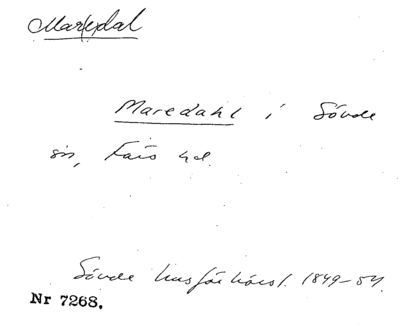 Maredal
Maredahl i Sövde
sn, Färs hd.
Sövde husförhörsl. 1849-54.
Nr 7268.